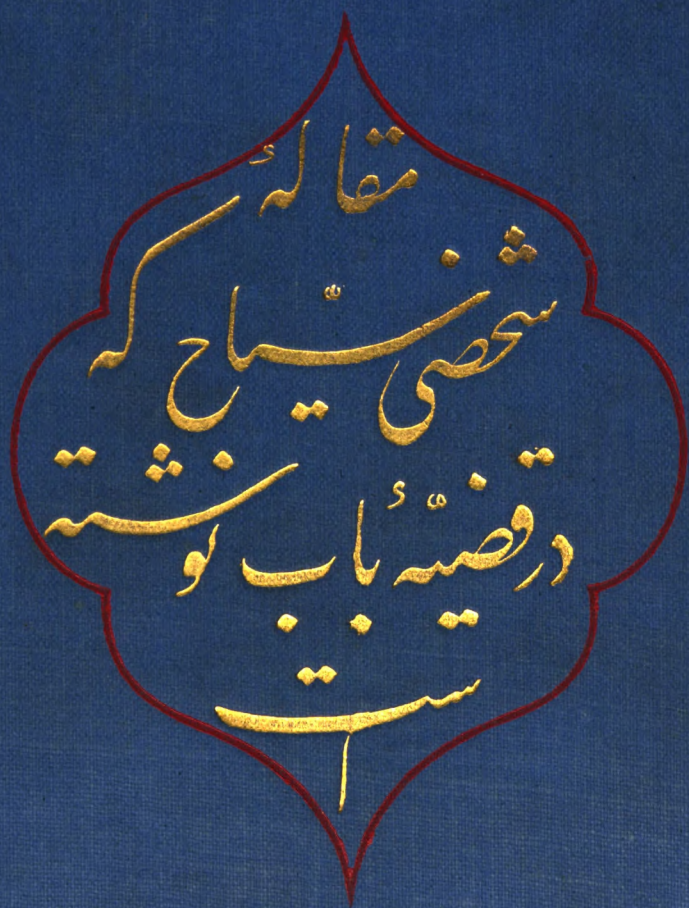 مقالهٔ
شخصی سیّاح که
در قضیّهٔ باب نوشته
است